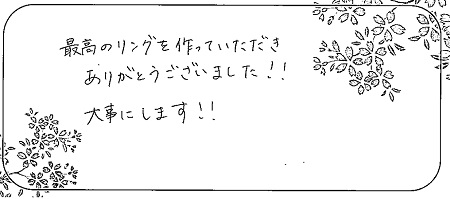 最高のリングを作っていただき
ありがとうございました!!
大事にします!!